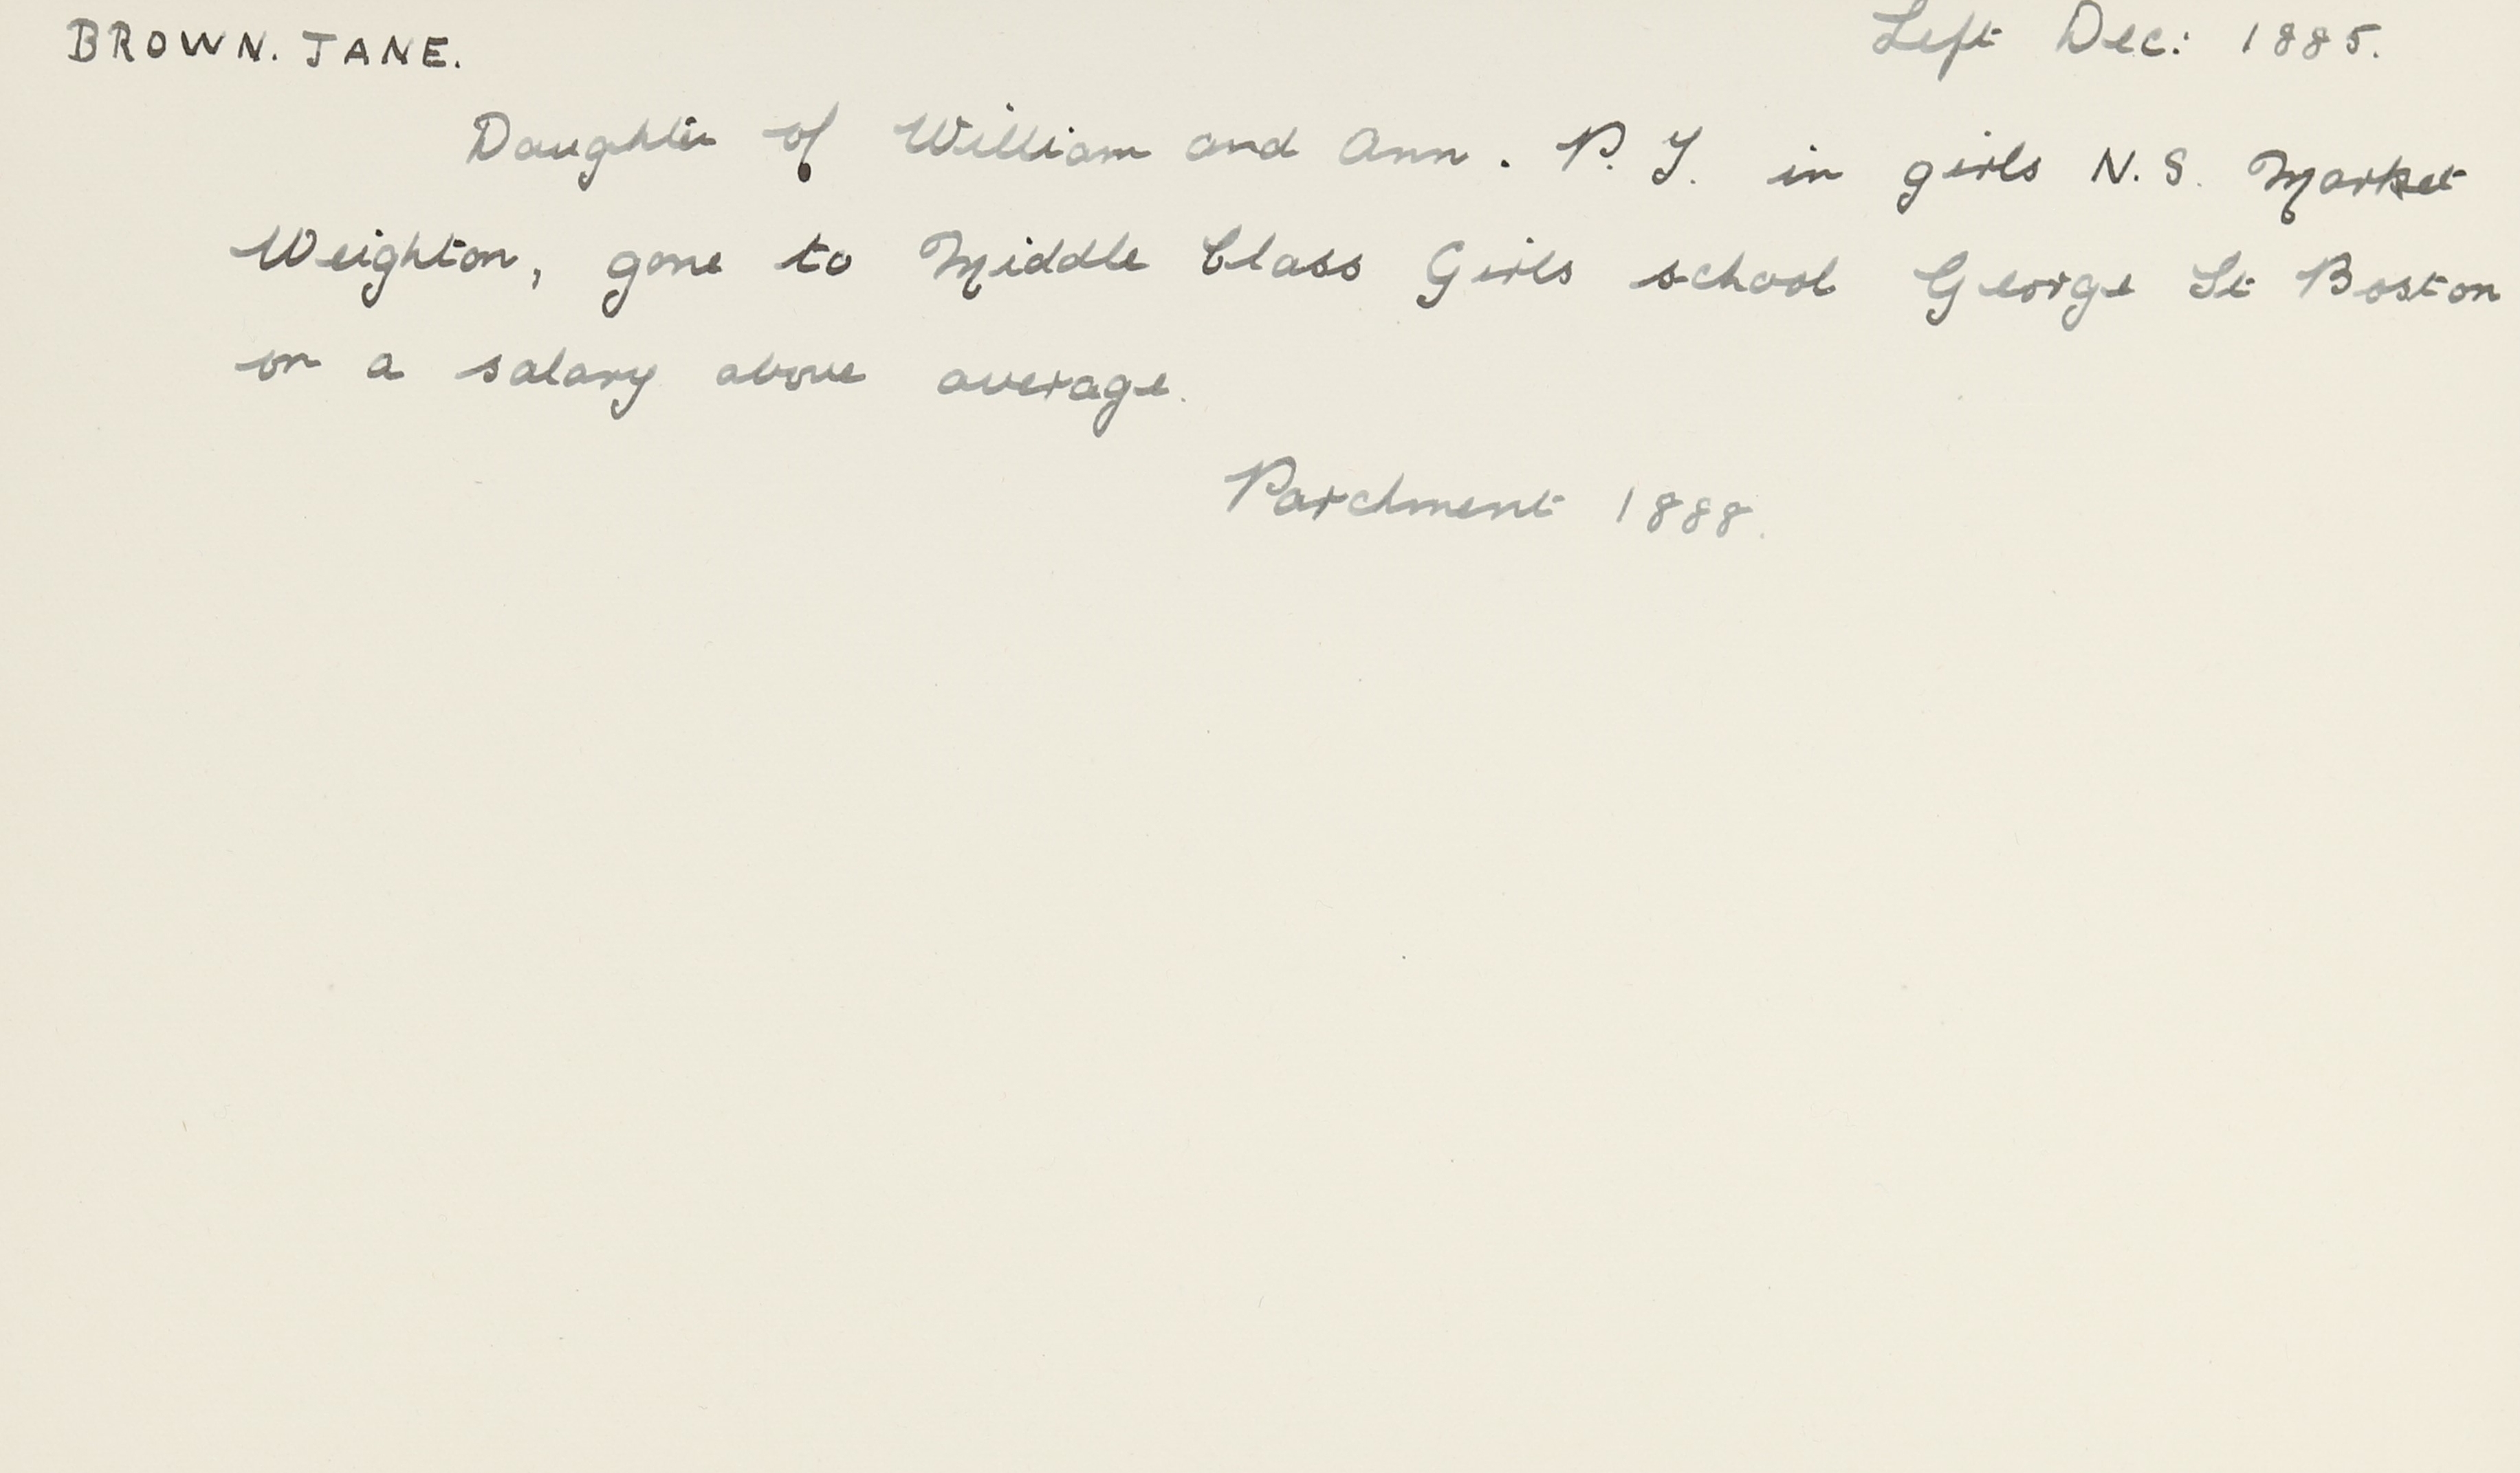 BROWN. JANE. Left Dec: 1885.
Daughter of William and Ann. P. T. in girls N. S. Market
Weighton, gone to Middle Class Girls school George St Boston
on a salary above average.
Parchment 1888.